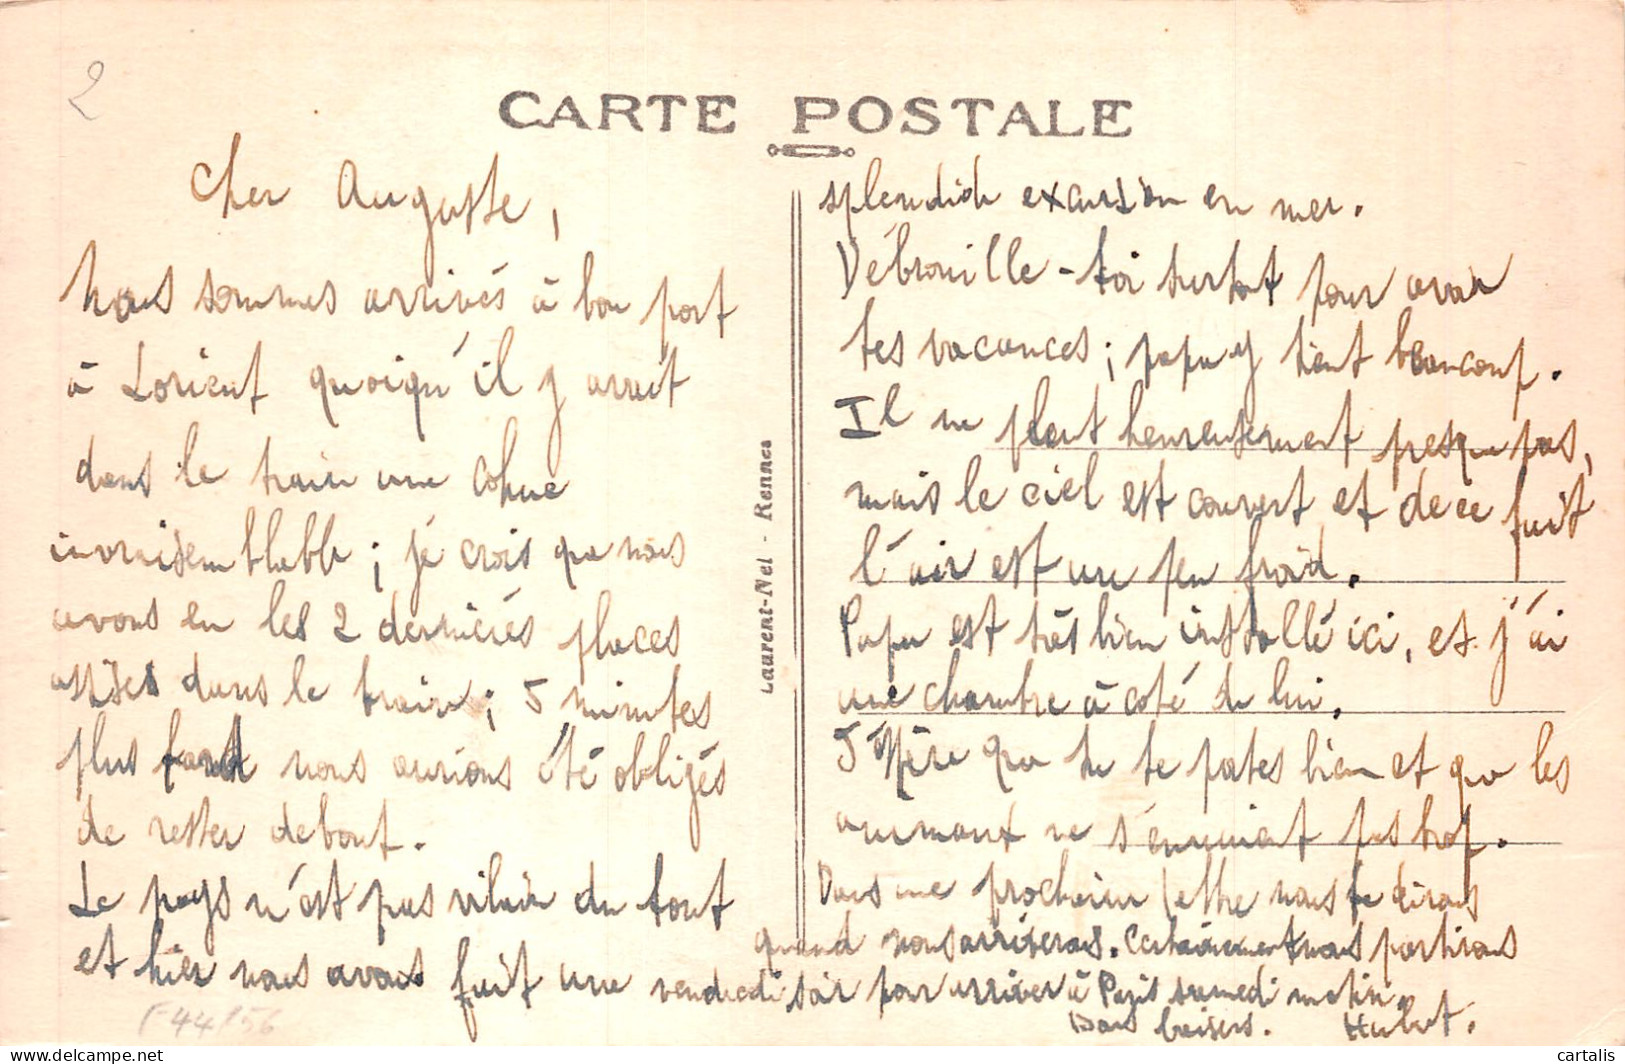 2
CARTE POSTALE
Cher Auguste,
Nous sommes arrivés à bon port
à Lorient quoiqu'il y avait
dans le train une cohue
invraisemblable ; je crois que nous
avons eu les 2 dernières places
assises dans le train ; 5 minutes
plus tard nous aurions été obligés
de rester debout.
Le pays n'est pas vilain du tout
et hier nous avons fait une
splendide excursion en mer.
Débrouille-toi surtout pour avoir
tes vacances ; papa y tient beaucoup.
Il ne pleut heureusement presque pas,
mais le ciel est couvert et de ce fait
l'air est un peu froid.
Papa est très bien installé ici, et j'ai
une chambre à coté de lui.
J'espère que tu te portes bien et que les
animaux ne s'ennuient pas trop.
Dans une prochaine lettre nous te dirons
quand nous arriverons. Certainement nous partirons
vendredi soir pour arriver à Paris samedi matin.
Bons baisers. Hubert.
Laurent-Nel - Rennes
F44/56
cartalis